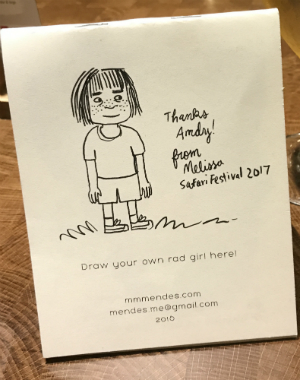 Thanks
Amdry!
from
Melissa
Safari Festival 2017
Draw your own rad girl here!
mmmendes.com
mendes.me@gmail.com
2016